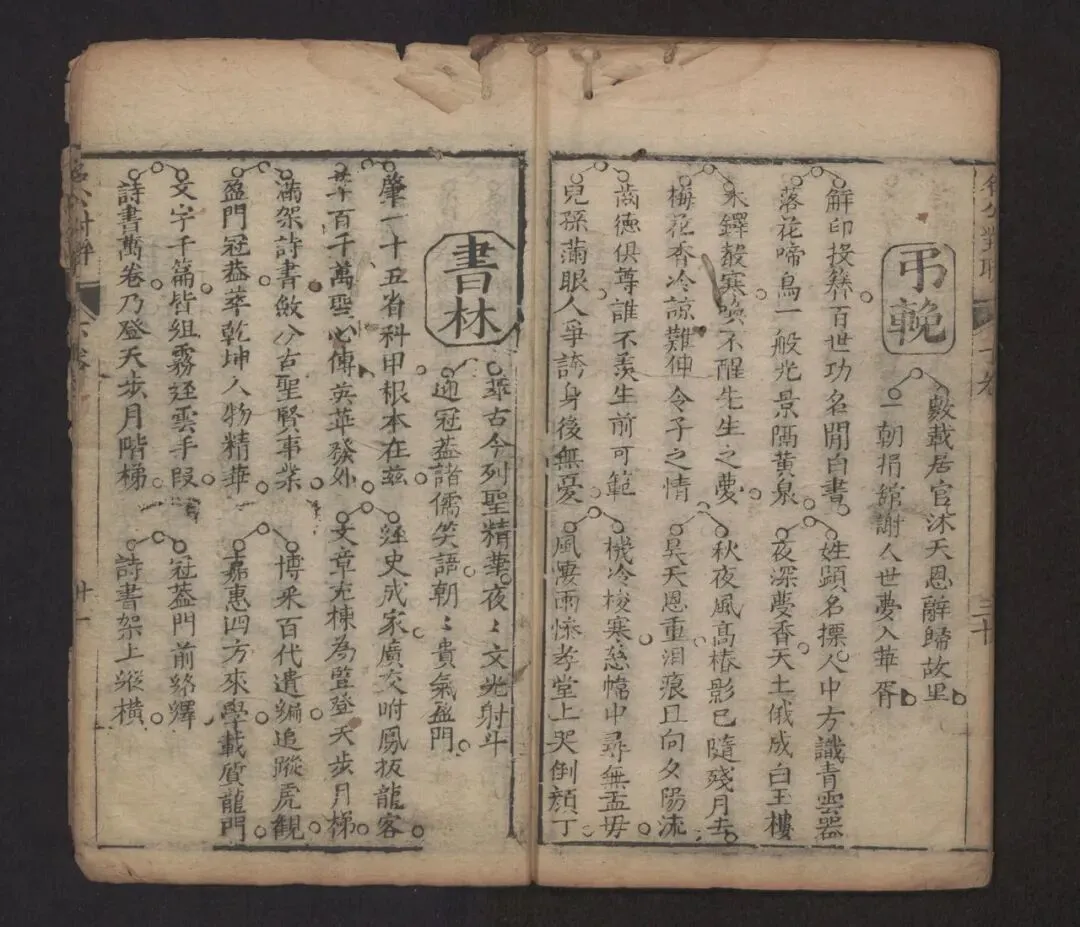 弔輓
數載居官沐天恩辭歸故里
一朝捐舘謝人世夢入華胥
解印投簪百世功名閒白晝
落花啼鳥一般光景隔黄泉
姓顕名摽人中方識青雲器
夜深夢杳天上俄成白玉樓
木鐸聲寒喚不醒先生之夢
梅花香冷諒難伸令子之情
秋夜風高椿影已隨殘月去
昊天恩重泪痕且向夕陽流
齒德俱尊誰不羨生前可範
兒孫滿眼人爭誇身後無憂
機冷梭寒慈幃中尋無孟母
風凄雨慘孝堂上哭倒顔丁
書林
萃古今列聖精華夜〻文光射斗
迎冠蓋諸儒笑語朝〻貴氣盈門
肇一十五省科甲根本在兹
萃百千萬聖心傳英華發外
經史成家廣交咐鳳扳龍客
文章充棟為監登天步月梯
滿架詩書敘分古聖賢事業
盈門冠蓋萃乾坤人物精華
博采百代遺編追蹤虎觀
嘉惠四方來學載質龍門
文字千篇皆組霧經雲手段
詩書萬卷乃登天步月階梯
冠蓋門前絡繹
詩書架上縱橫
下卷
廿一